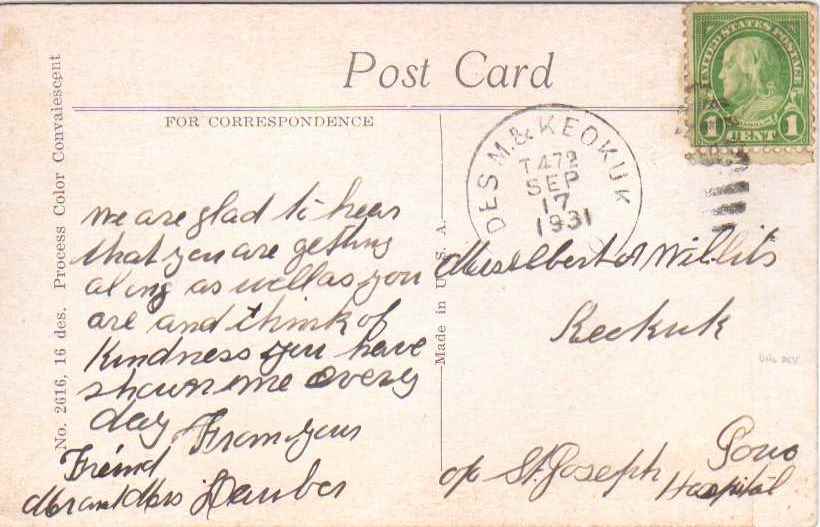 Post Card
FOR CORRESPONDENCE
No. 2616, 16 des. Process Color Convalescent
Made in U. S. A.
UNITED STATES POSTAGE
1 CENT 1
DES M. & KEOKUK
T472
SEP
17
1931
we are glad to hear
that you are getting
along as well as you
are and think of
Kindness you have
shown me every
day From your
Freind
Mr and Mrs Dauber
Albert Willits
Keokuk
Iowa
c/o St. Joseph Hospital